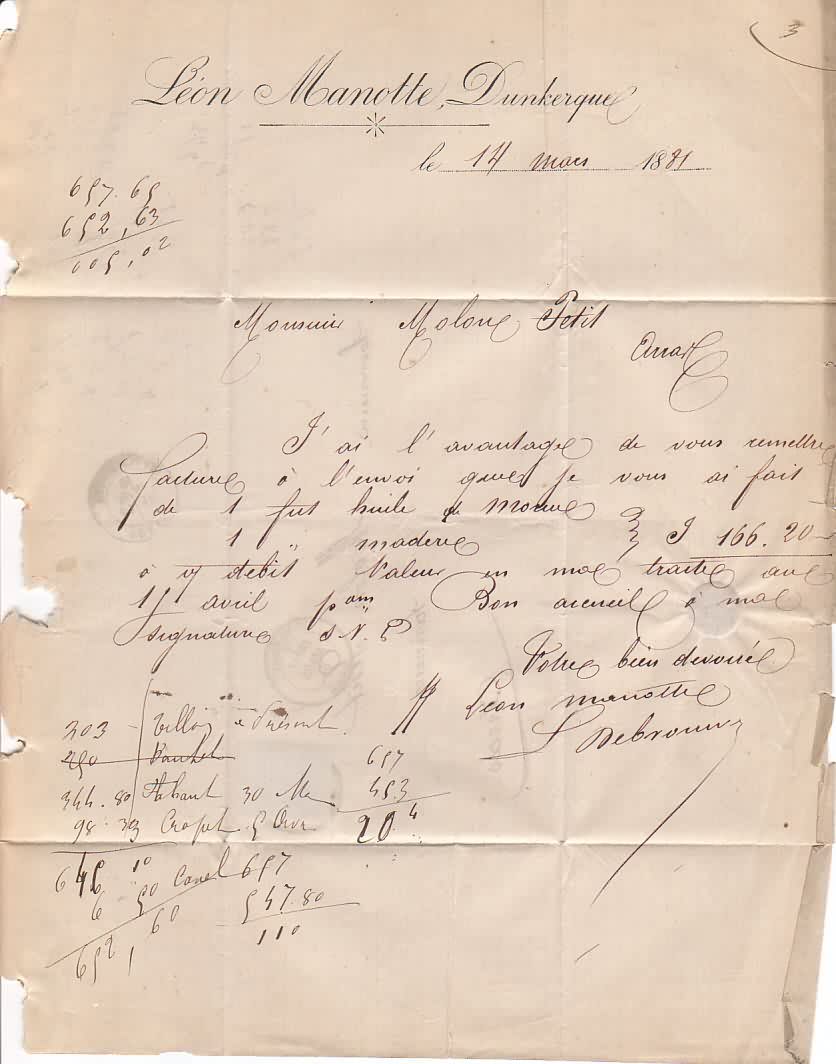 3
Léon Manotte, Dunkerque
le 14 mars 1881
657.65
652,63
005,02
Monsieur Molone Petit
Arras
J'ai l'avantage de vous remettre
facture à l'envoi que je vous ai fait
de 1 fut huile de morue
1 " madere } F 166.20
à v/ débit Valeur en ma traite au
15 avril Bon accueil à ma
signature S.N.P
Votre bien dévoué
Léon Manotte
L Debrouwer
303 à Présent
250
344.80 30
98.33 5
657
453
204
646 10
6 50
652 60
657
547.80
110